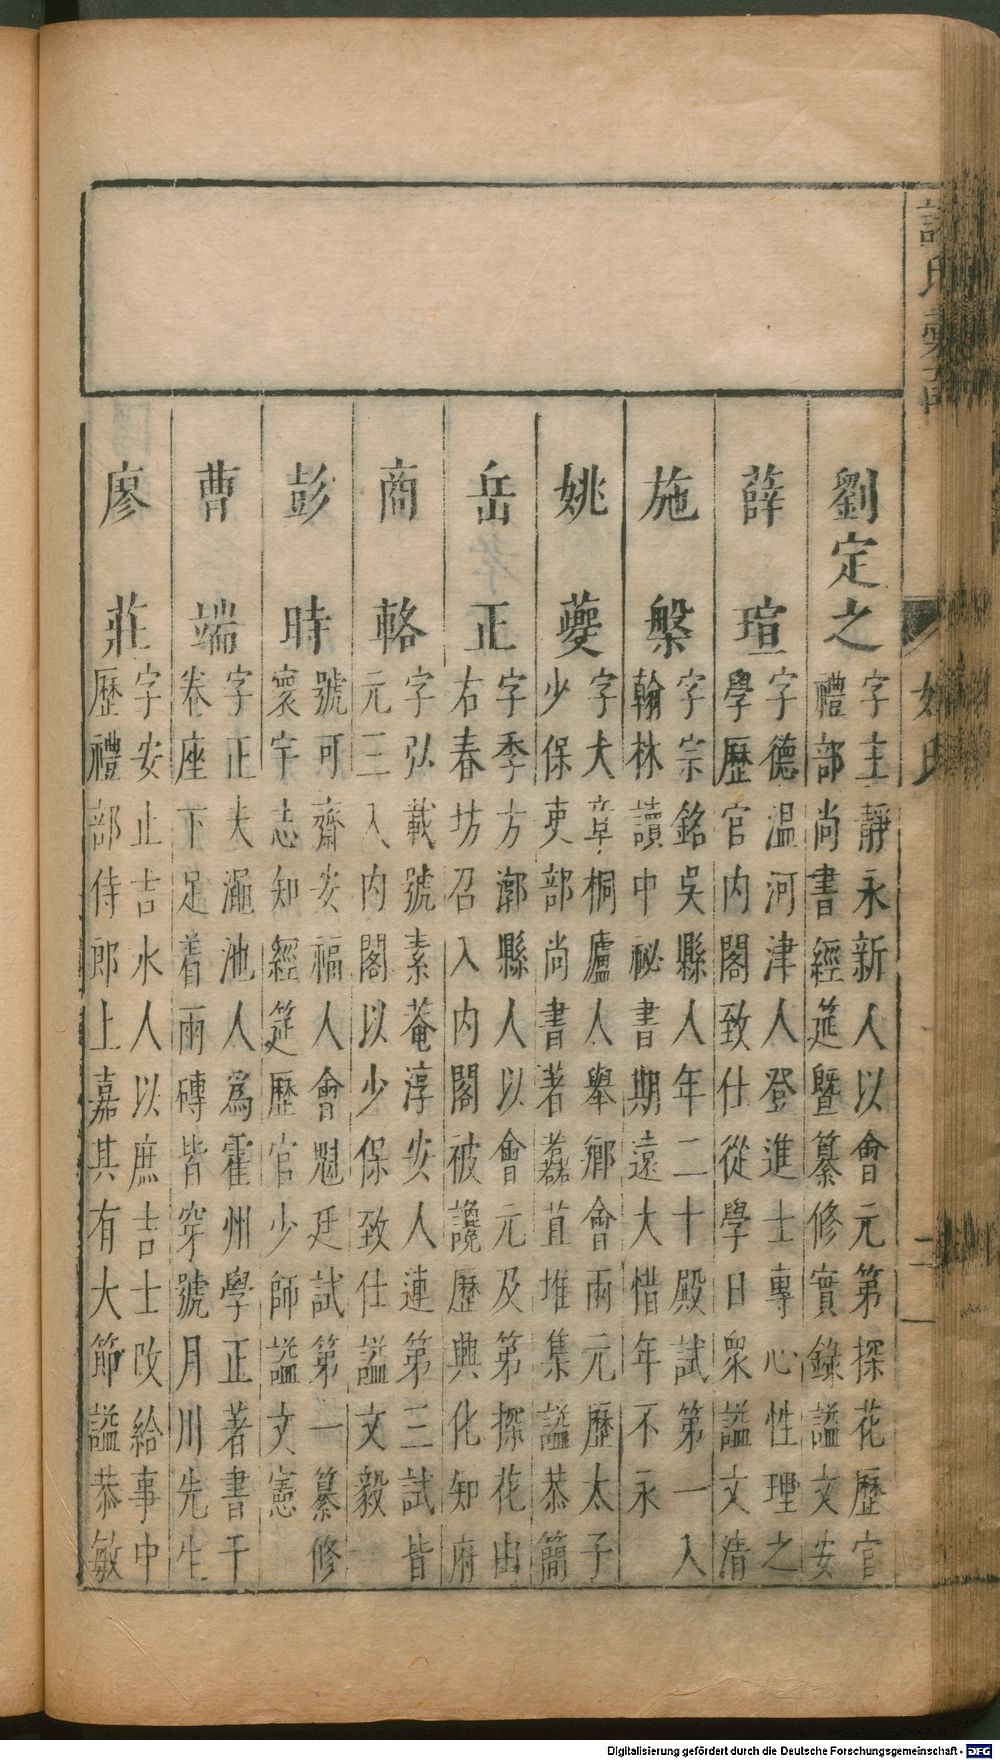 劉定之
字主靜永新人以會元第探花歷官
禮部尚書經筵暨纂修實錄謚文安
薛瑄
字德温河津人登進士專心性理之
學歷官内閣致仕從學日衆謚文清
施槃
字宗銘吳縣人年二十殿試第一入
翰林讀中祕書期遠大惜年不永
姚夔
字大章桐廬人舉鄉會兩元歷太子
少保吏部尚書著磊苴堆集謚恭簡
岳正
字季方漷縣人以會元及第探花由
右春坊召入内閣被讒歷興化知府
商輅
字弘載號素菴淳安人連第三試皆
元三入内閣以少保致仕謚文毅
彭時
號可齋安福人會魁廷試第一纂修
寰宇志知經筵歷官少師謚文憲
曹端
字正夫澠池人爲霍州學正著書干
卷座下足着兩磚皆穿號月川先生
廖莊
字安止吉水人以庶吉士改給事中
歷禮部侍郎上嘉其有大節謚恭敏
姓氏
二
Digitalisierung gefördert durch die Deutsche Forschungsgemeinschaft - DFG